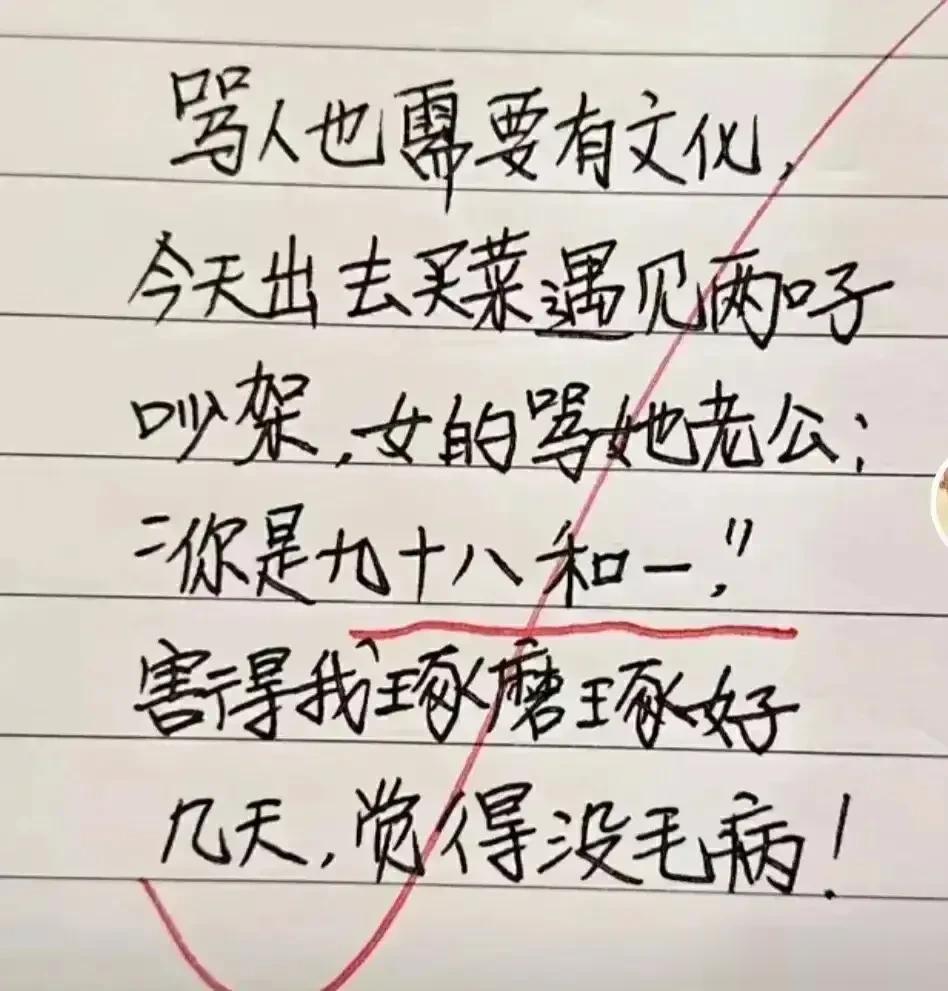 骂人也需要有文化,
今天出去买菜遇见两口子
吵架,女的骂她老公:
"你是九十八和一,"
害得我琢磨琢好
几天,觉得没毛病!